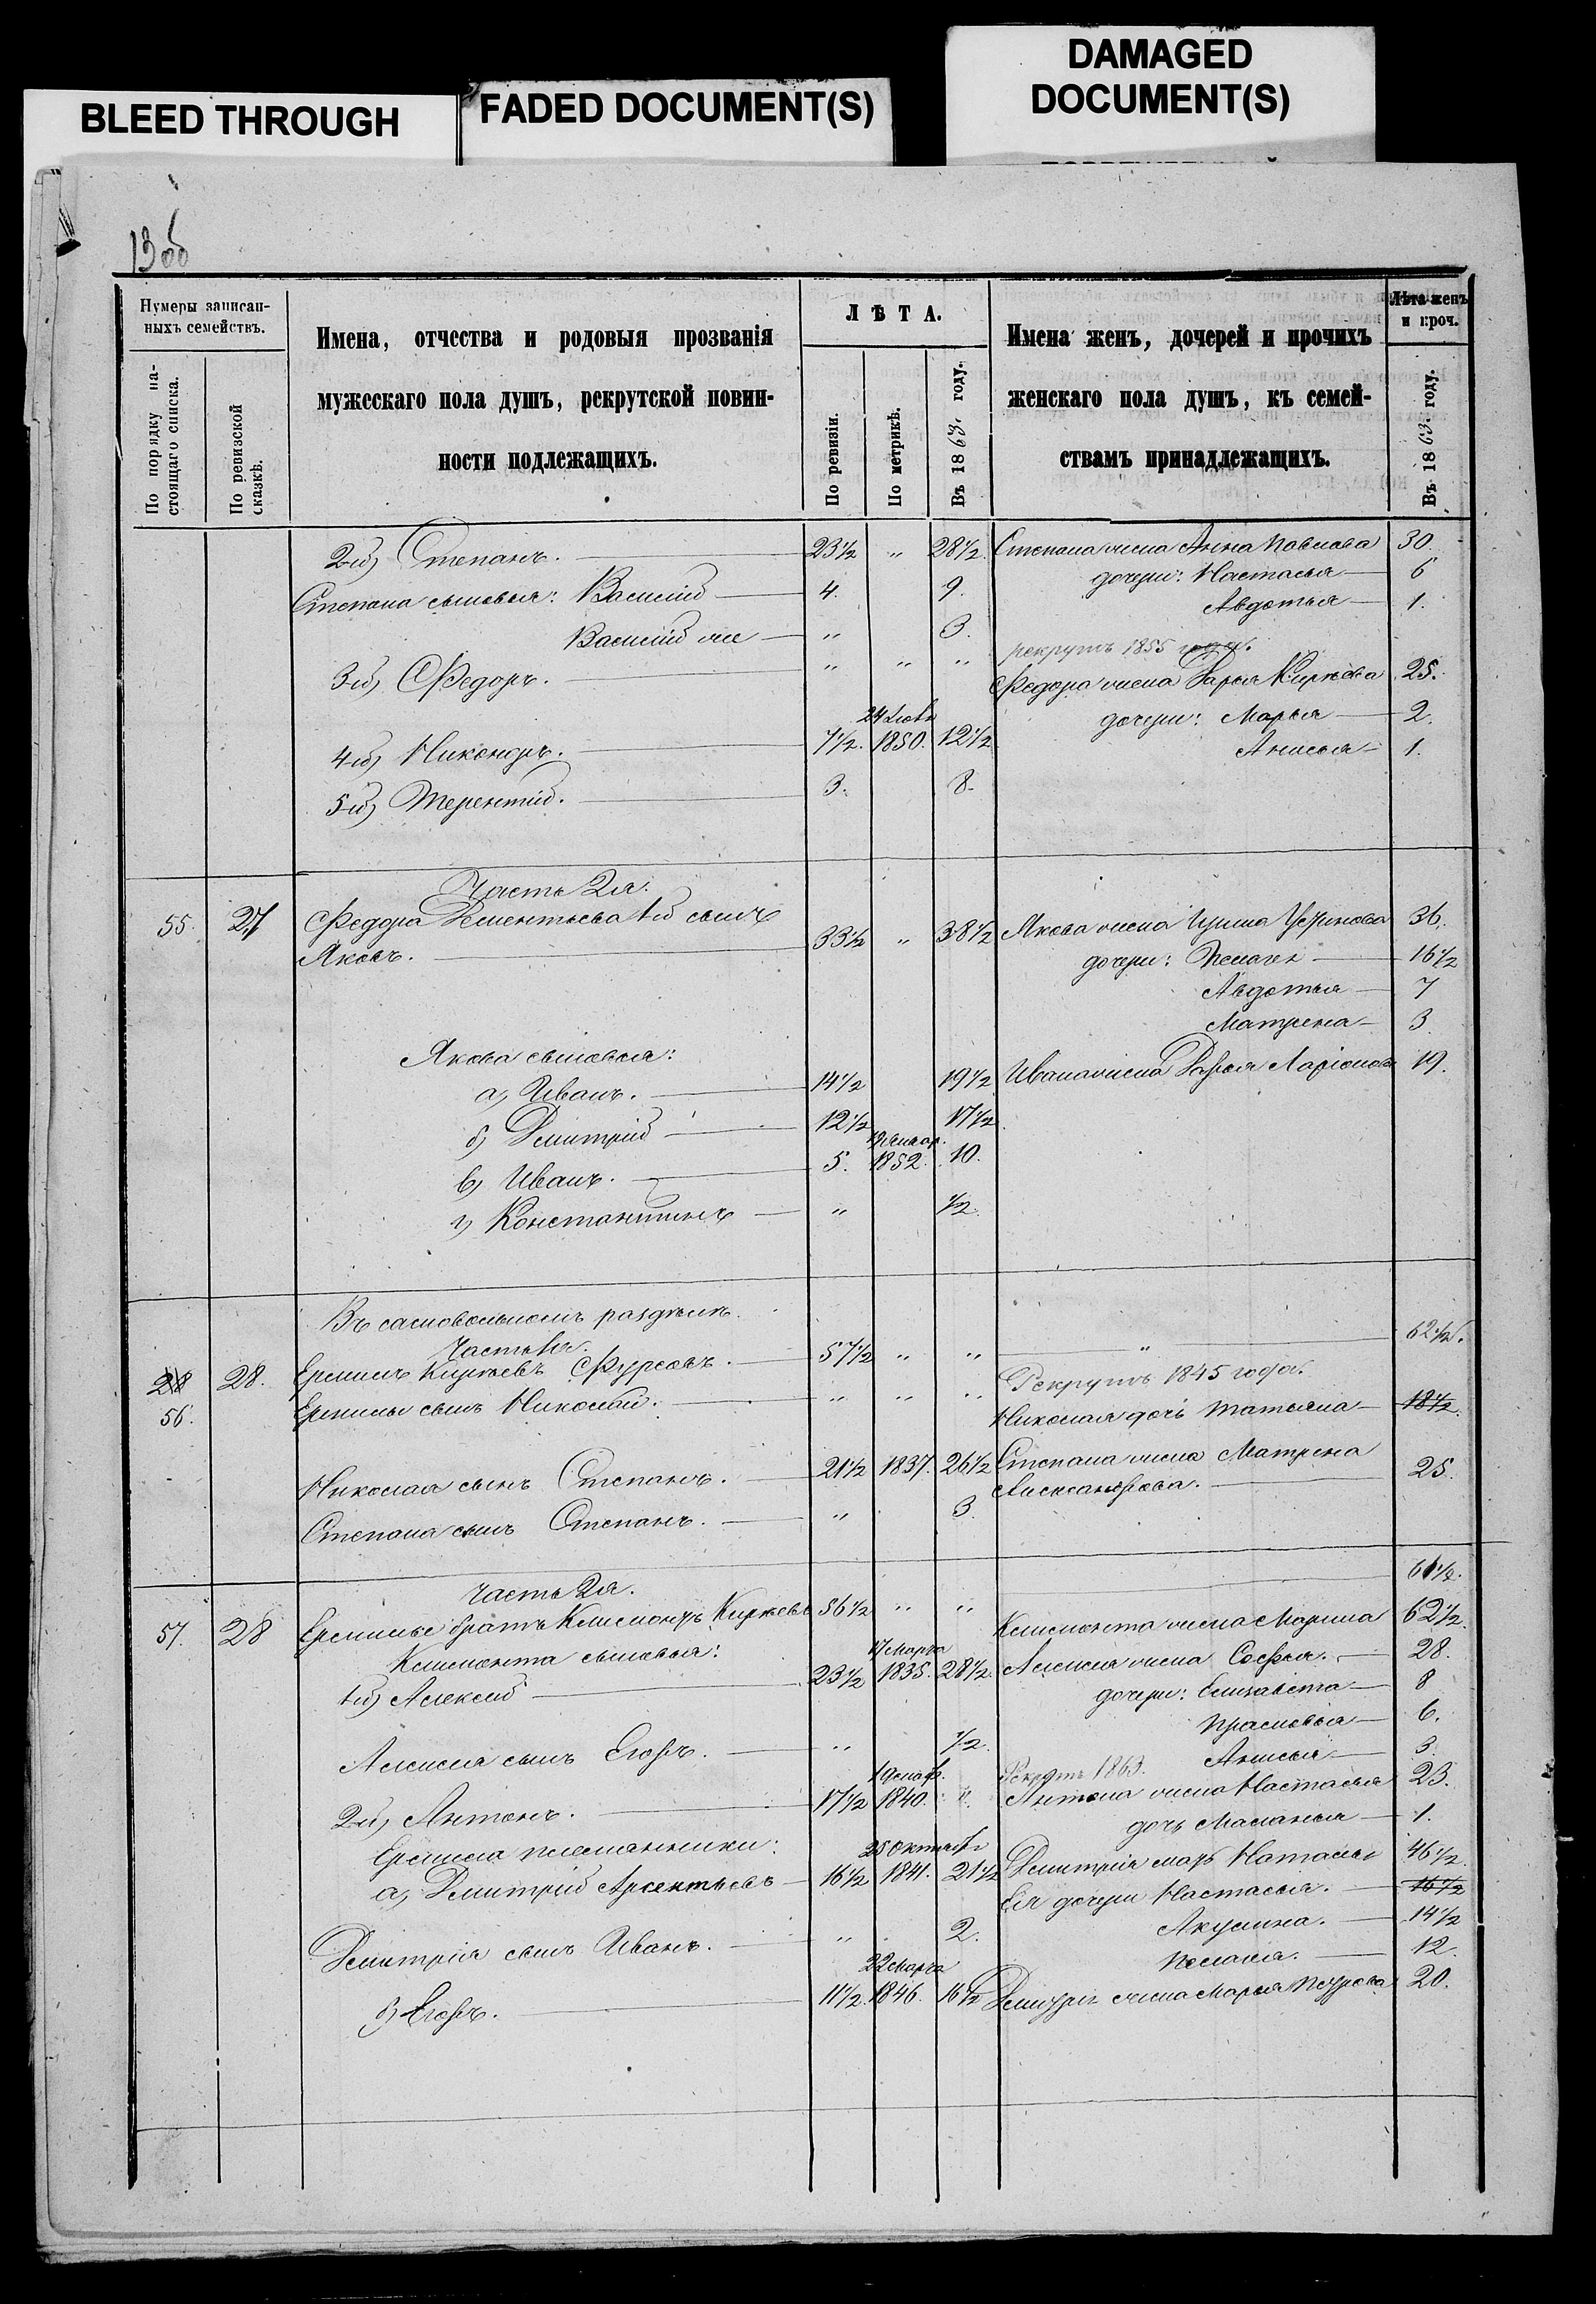 BLEED THROUGH
FADED DOCUMENT(S)
DAMAGED
DOCUMENT(S)
13об
Нумеры записан-
ныхъ семействъ.
По порядку на-
стоящаго списка.
По ревизской
сказкѣ.
Имена, отчества и родовыя прозванія
мужескаго пола душъ, рекрутской повин-
ности подлежащихъ.
ЛѢТА.
По ревизіи.
По метрикѣ.
Въ 1863. году.
Имена женъ, дочерей и прочихъ
женскаго пола душъ, къ семей-
ствамъ принадлежащихъ.
Лѣта женъ
и проч.
Въ 1863. году.
2й) Степанъ. 23½ " 28½. Степана жена Анна Павлова 30.
дочери: Настасья 6
Степана сыновья: Василій 4. 9.
Авдотья 1.
Василій же " 3.
рекрутъ 1855 года.
3й) Федоръ. " " "
Федора жена Дарья Кирѣева 25.
дочери: Марья 2.
4й) Никандръ. 7½. 1850. 12½
Анисья 1.
5й) Терентій. 3. 8.
Часть 2я.
55. 27 Федора Дементьева 1й сынъ
Яковъ. 33½ " 38½ Якова жена Ирина Устинова 36.
дочери: Пелагея 16½
Авдотья 7
Матрена 3.
Якова сыновья:
а) Иванъ. 14½ 19½ Ивана жена Дарья Ларіонова 19.
б) Дмитрій 12½ 17½
в) Иванъ. 5. 1852. 10.
г) Константинъ " ½
Въ самовольномъ раздѣлѣ.
Часть 1я.
62½.
28 28. Еремѣй Кирѣевъ Фурсовъ. 57½ " " "
56.
Рекрутъ 1845 года.
сынъ Николай. " " "
Николая дочь Татьяна 18½.
Николая сынъ Степанъ. 21½ 1837. 26½ Степана жена Матрена
Александрова. 25.
Степана сынъ Степанъ. " 3.
Часть 2я.
61½.
57. 28 братъ Клемонтъ Кирѣевъ 56½ " "
Клемонта жена Марина 62½.
Клемонта сыновья:
17 Марта
1й) Алексѣй 23½ 1835. 28½. Алексѣя жена Софья. 28.
дочери: Елизавета 8
Прасковья 6.
Алексѣя сынъ Егоръ. " ½.
Анисья 3.
Рекрутъ 1863.
2й) Антонъ. 17½ 1840. " Антона жена Настасья 23.
дочь Маланья 1.
племянники:
25 Октября
а) Дмитрій Арсентьевъ 16½ 1841. 21½ Дмитрія мать Наталья 46½.
Ея дочери Настасья. 16½
Акулина. 14½
Дмитрія сынъ Иванъ. " 2.
Пелагея. 12.
22 Марта
б) Егоръ. 11½. 1846. 16½ Дмитрія жена Марья Петрова 20.